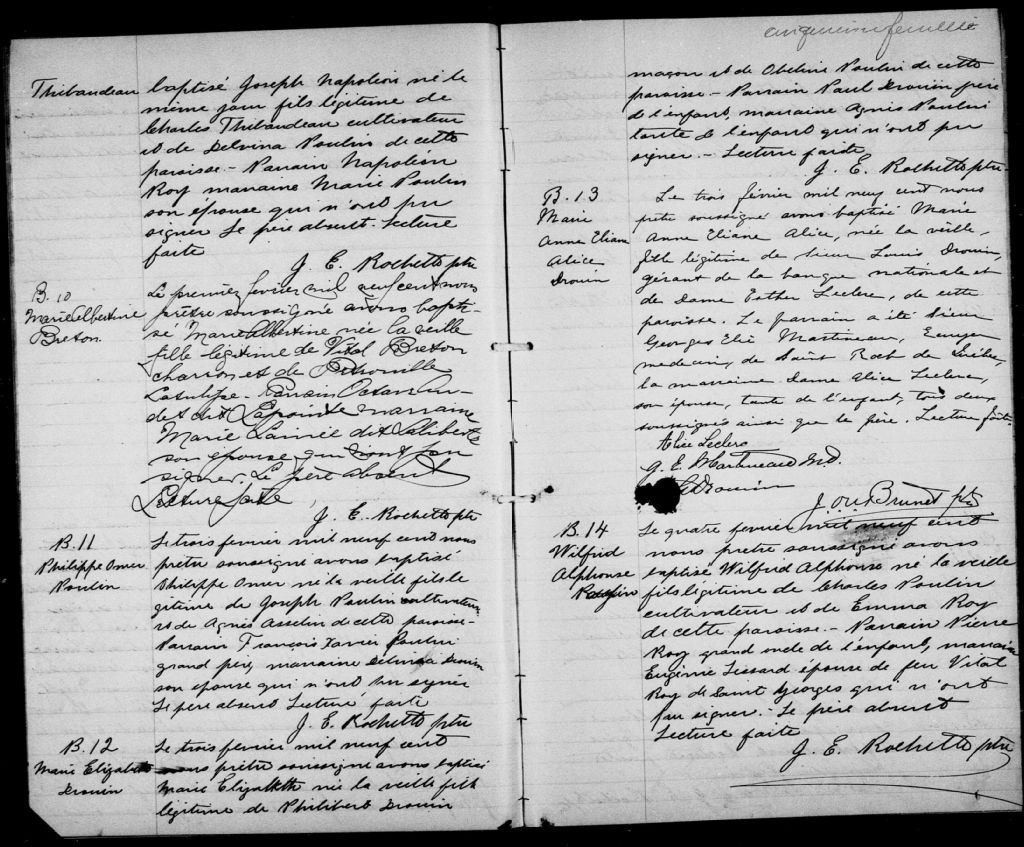 Thibaudeau
baptisé Joseph Napoléon né le
même jour fils légitime de
Charles Thibaudeau cultivateur
et de Delvina Poulin de cette
paroisse - Parrain Napoléon
Roy marraine Marie Poulin
son épouse qui n'ont pu
signer le père absent. Lecture
faite
J. E. Rochette ptre
B. 10
Marie Albertine
Breton
Le premier février mil neuf cent nous
prêtre soussigné avons bapti-
sé Marie Albertine née la veille
fille légitime de Vital Breton
charron et de Pétronille
Latulipe. Parrain
dit Lapointe marraine
Marie Lainée dit Laliberté
son épouse qui n'ont su
signer. Le père absent
Lecture faite
J. E. Rochette ptre
B. 11
Philippe Omer
Poulin
Le trois février mil neuf cent nous
prêtre soussigné avons baptisé
Philippe Omer né la veille fils lé
gitime de Joseph Poulin cultivateur
et de Agnès Asselin de cette paroisse-
Parrain François Xavier Poulin
grand père, marraine Delvina Drouin
son épouse qui n'ont su signer
Le père absent Lecture faite
J. E. Rochette ptre
B. 12
Marie Elizabeth
Drouin
Le trois février mil neuf cent
nous prêtre soussigné avons baptisé
Marie Elizabeth née la veille fille
légitime de Philibert Drouin
feuillet
maçon et de Obeline Poulin de cette
paroisse - Parrain Paul Drouin père
de l'enfant, marraine Agnès Poulin
tante de l'enfant qui n'ont pu
signer. - Lecture faite
J. E. Rochette ptre
B. 13
Marie
Anne Eliane
Alice
Drouin
Le trois février mil neuf cent nous
prêtre soussigné avons baptisé Marie
Anne Eliane Alice, née la veille,
fille légitime de sieur Louis Drouin,
gérant de la banque nationale et
de Dame Esther Leclerc, de cette
paroisse. Le parrain a été sieur
Georges Elié Martineau, Ecuyer
médecin, de Saint Roch de Québec,
la marraine Dame Alice Leclerc,
son épouse, tante de l'enfant, tous deux
soussignés ainsi que le père. Lecture faite.
Alice Leclerc
G. E. Martineau M.D.
Drouin
J Brunet ptre
B. 14
Wilfrid
Alphonse
Poulin
Le quatre février mil neuf cent
nous prêtre soussigné avons
baptisé Wilfrid Alphonse né la veille
fils légitime de Charles Poulin
cultivateur et de Emma Roy
de cette paroisse. - Parrain Pierre
Roy grand oncle de l'enfant, marraine
Eugénie Lessard épouse de feu Vital
Roy de Saint Georges qui n'ont
pu signer. - Le père absent
Lecture faite
J. E. Rochette ptre